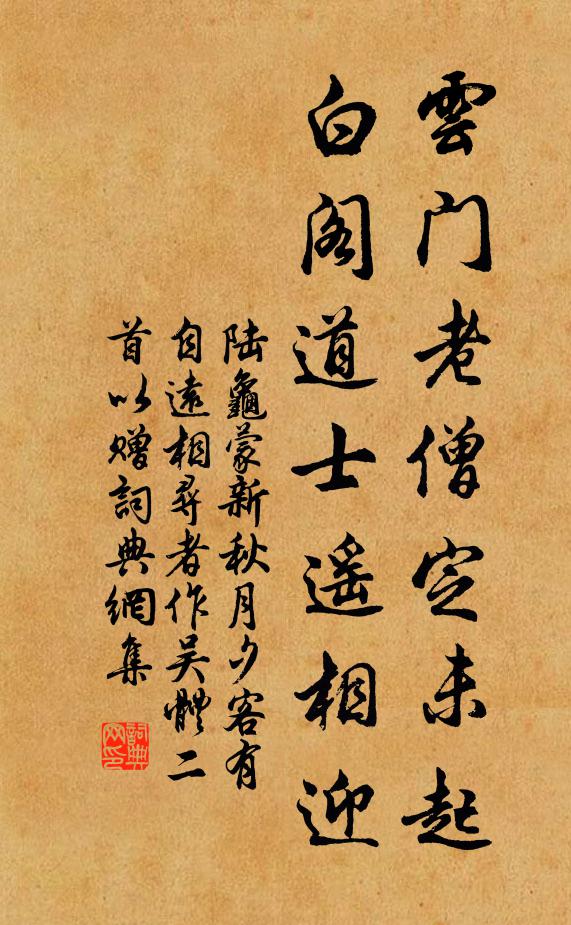 雲門老僧定未起
白閣道士遥相迎
陆龜蒙新秋月夕客有
自遠相尋者作吴體二
首以赠詞典網集
詞典网印